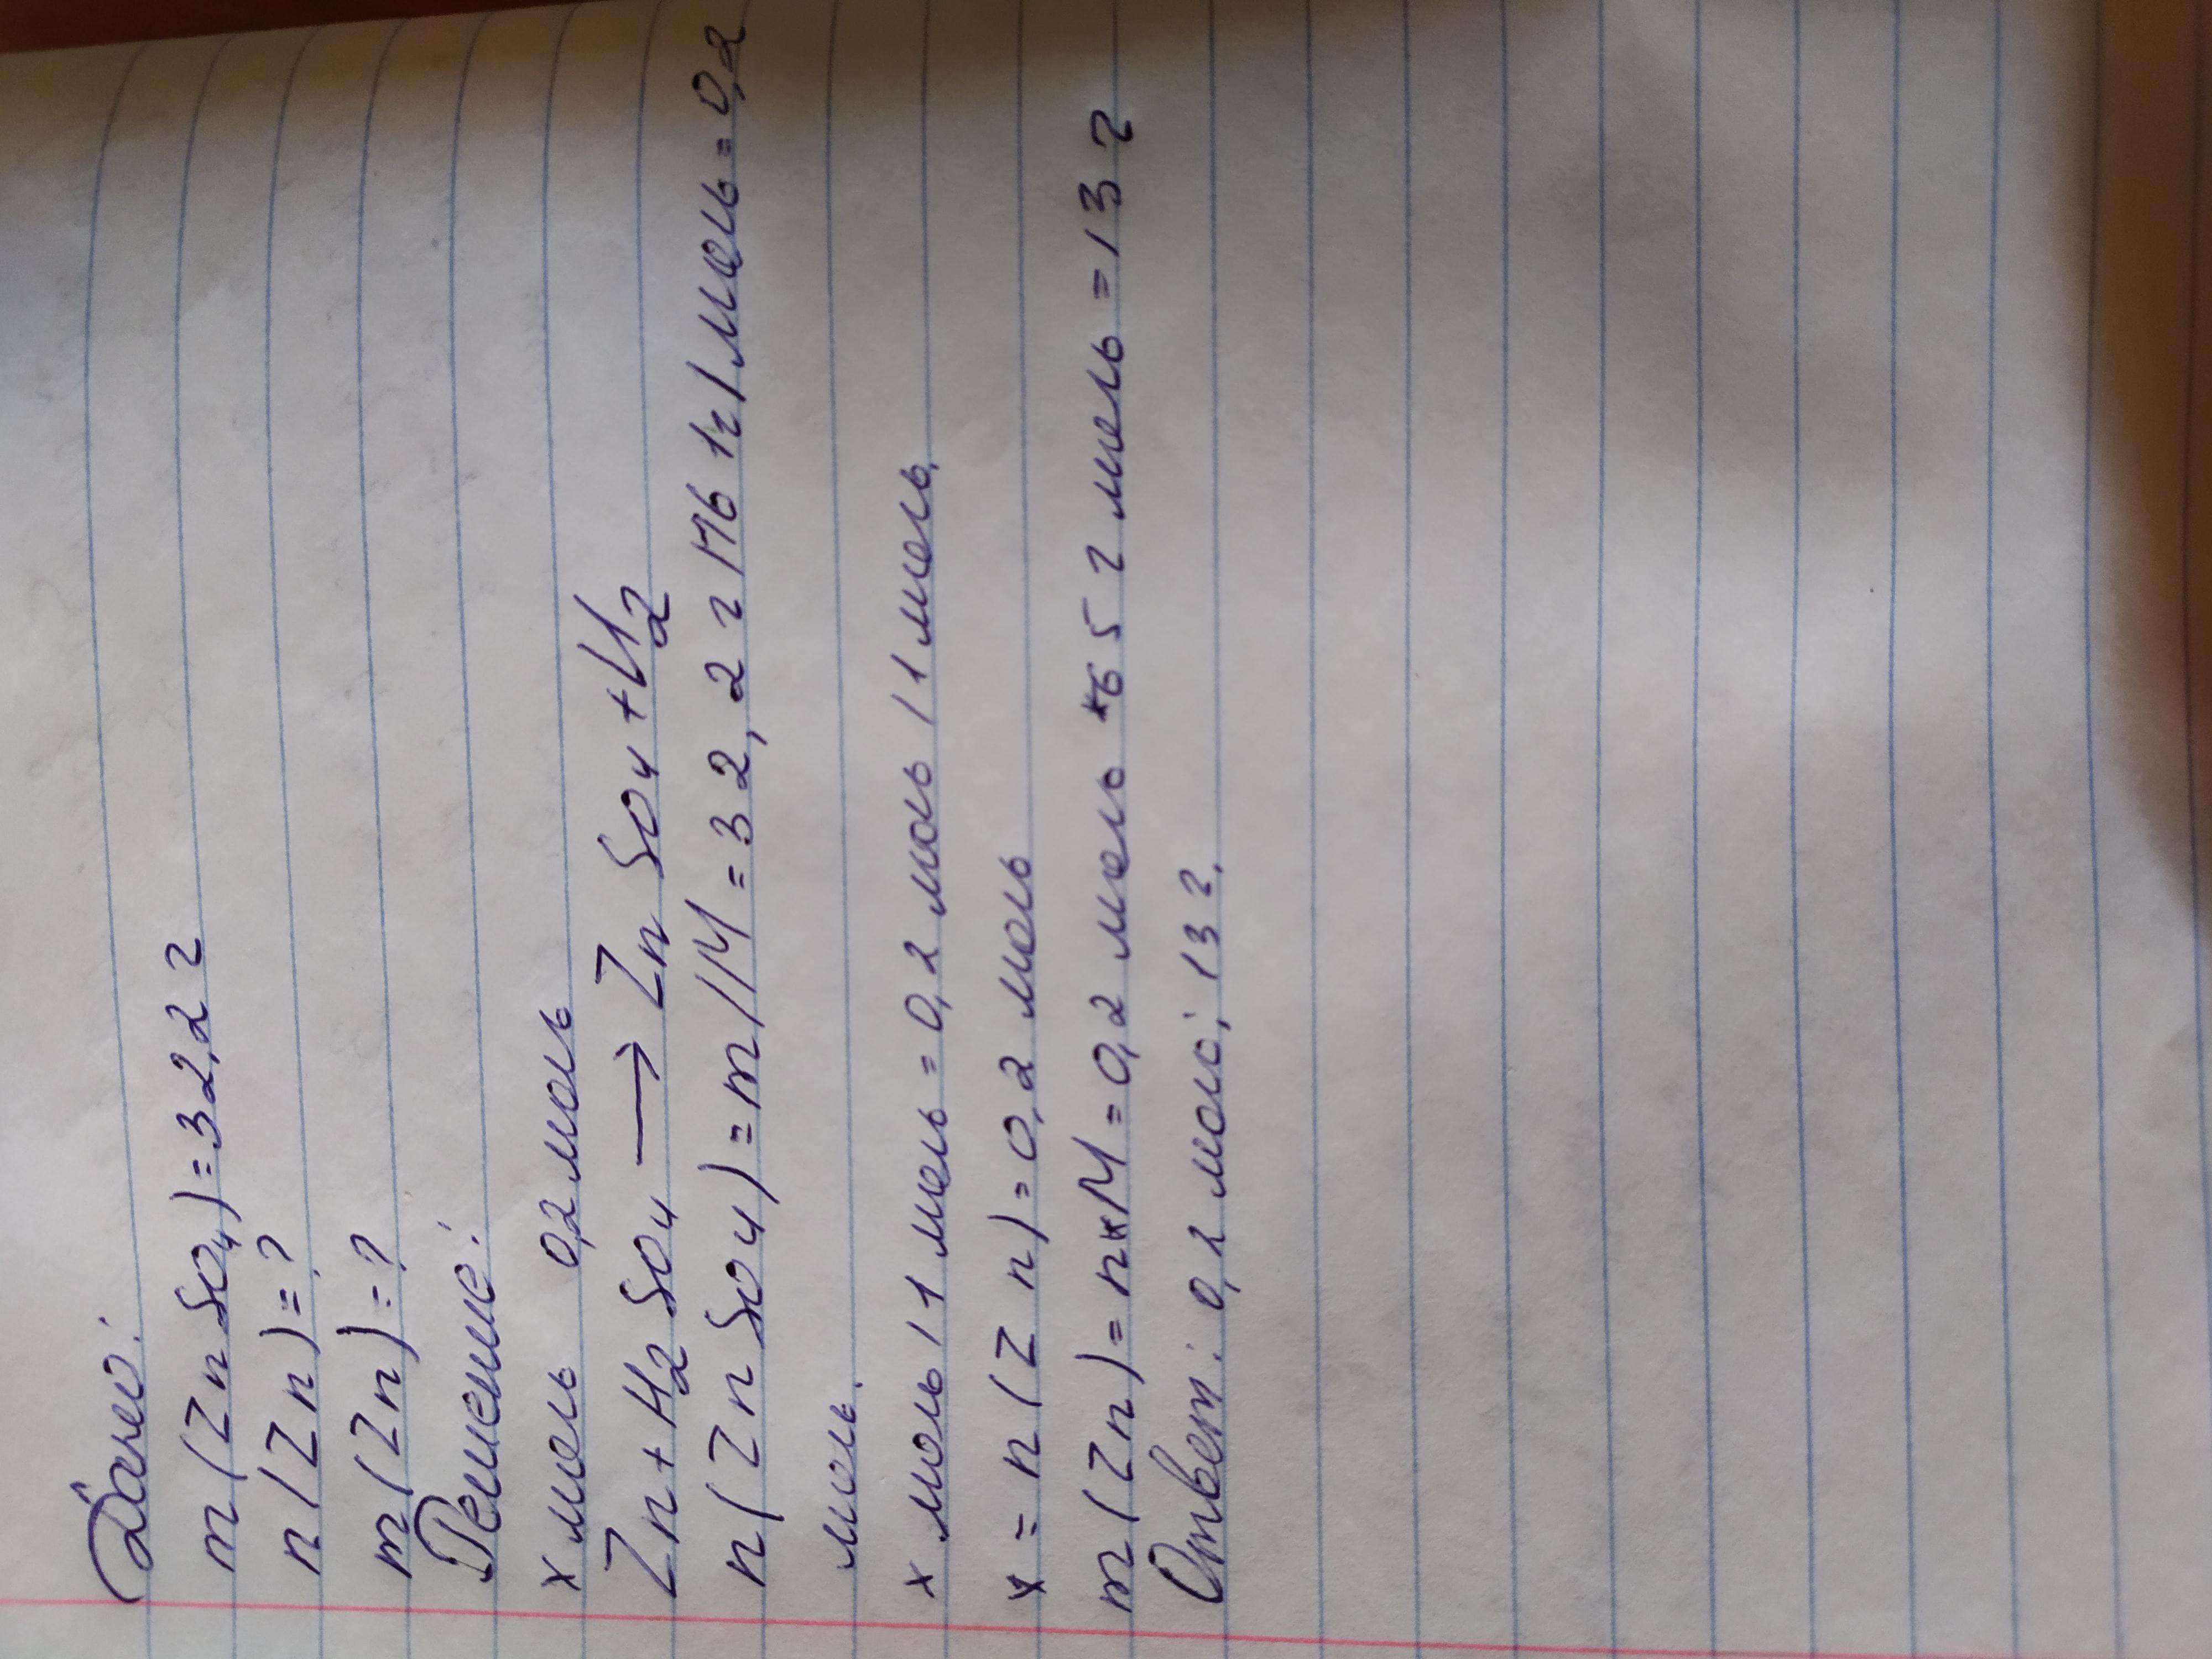 Дано:
m(ZnSO4)=32,2 г
n(Zn)=?
m(Zn)=?
Решение:
x моль 0,2 моль
Zn+H2SO4→ZnSO4+H2
n(ZnSO4)=m/M=32,2 г/161г/моль=0,2
моль.
x моль/1 моль=0,2 моль/1 моль,
x=n(Zn)=0,2 моль
m(Zn)=n*M=0,2 моль*65 г моль=13 г
Ответ: 0,2 моль; 13 г.